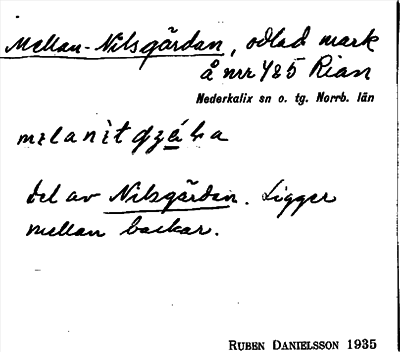 Mellan-Nilsgärdan, odlad mark
å nrr 425 Rian
Nederkalix sn o. tg. Norrb. län
del av Nilsgärdan. Ligger
mellan backar.
RUBEN DANIELSSON 1935